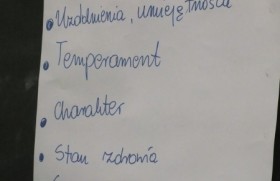 Uzdolnienia, umiejętności
Temperament
Charakter
Stan zdrowia